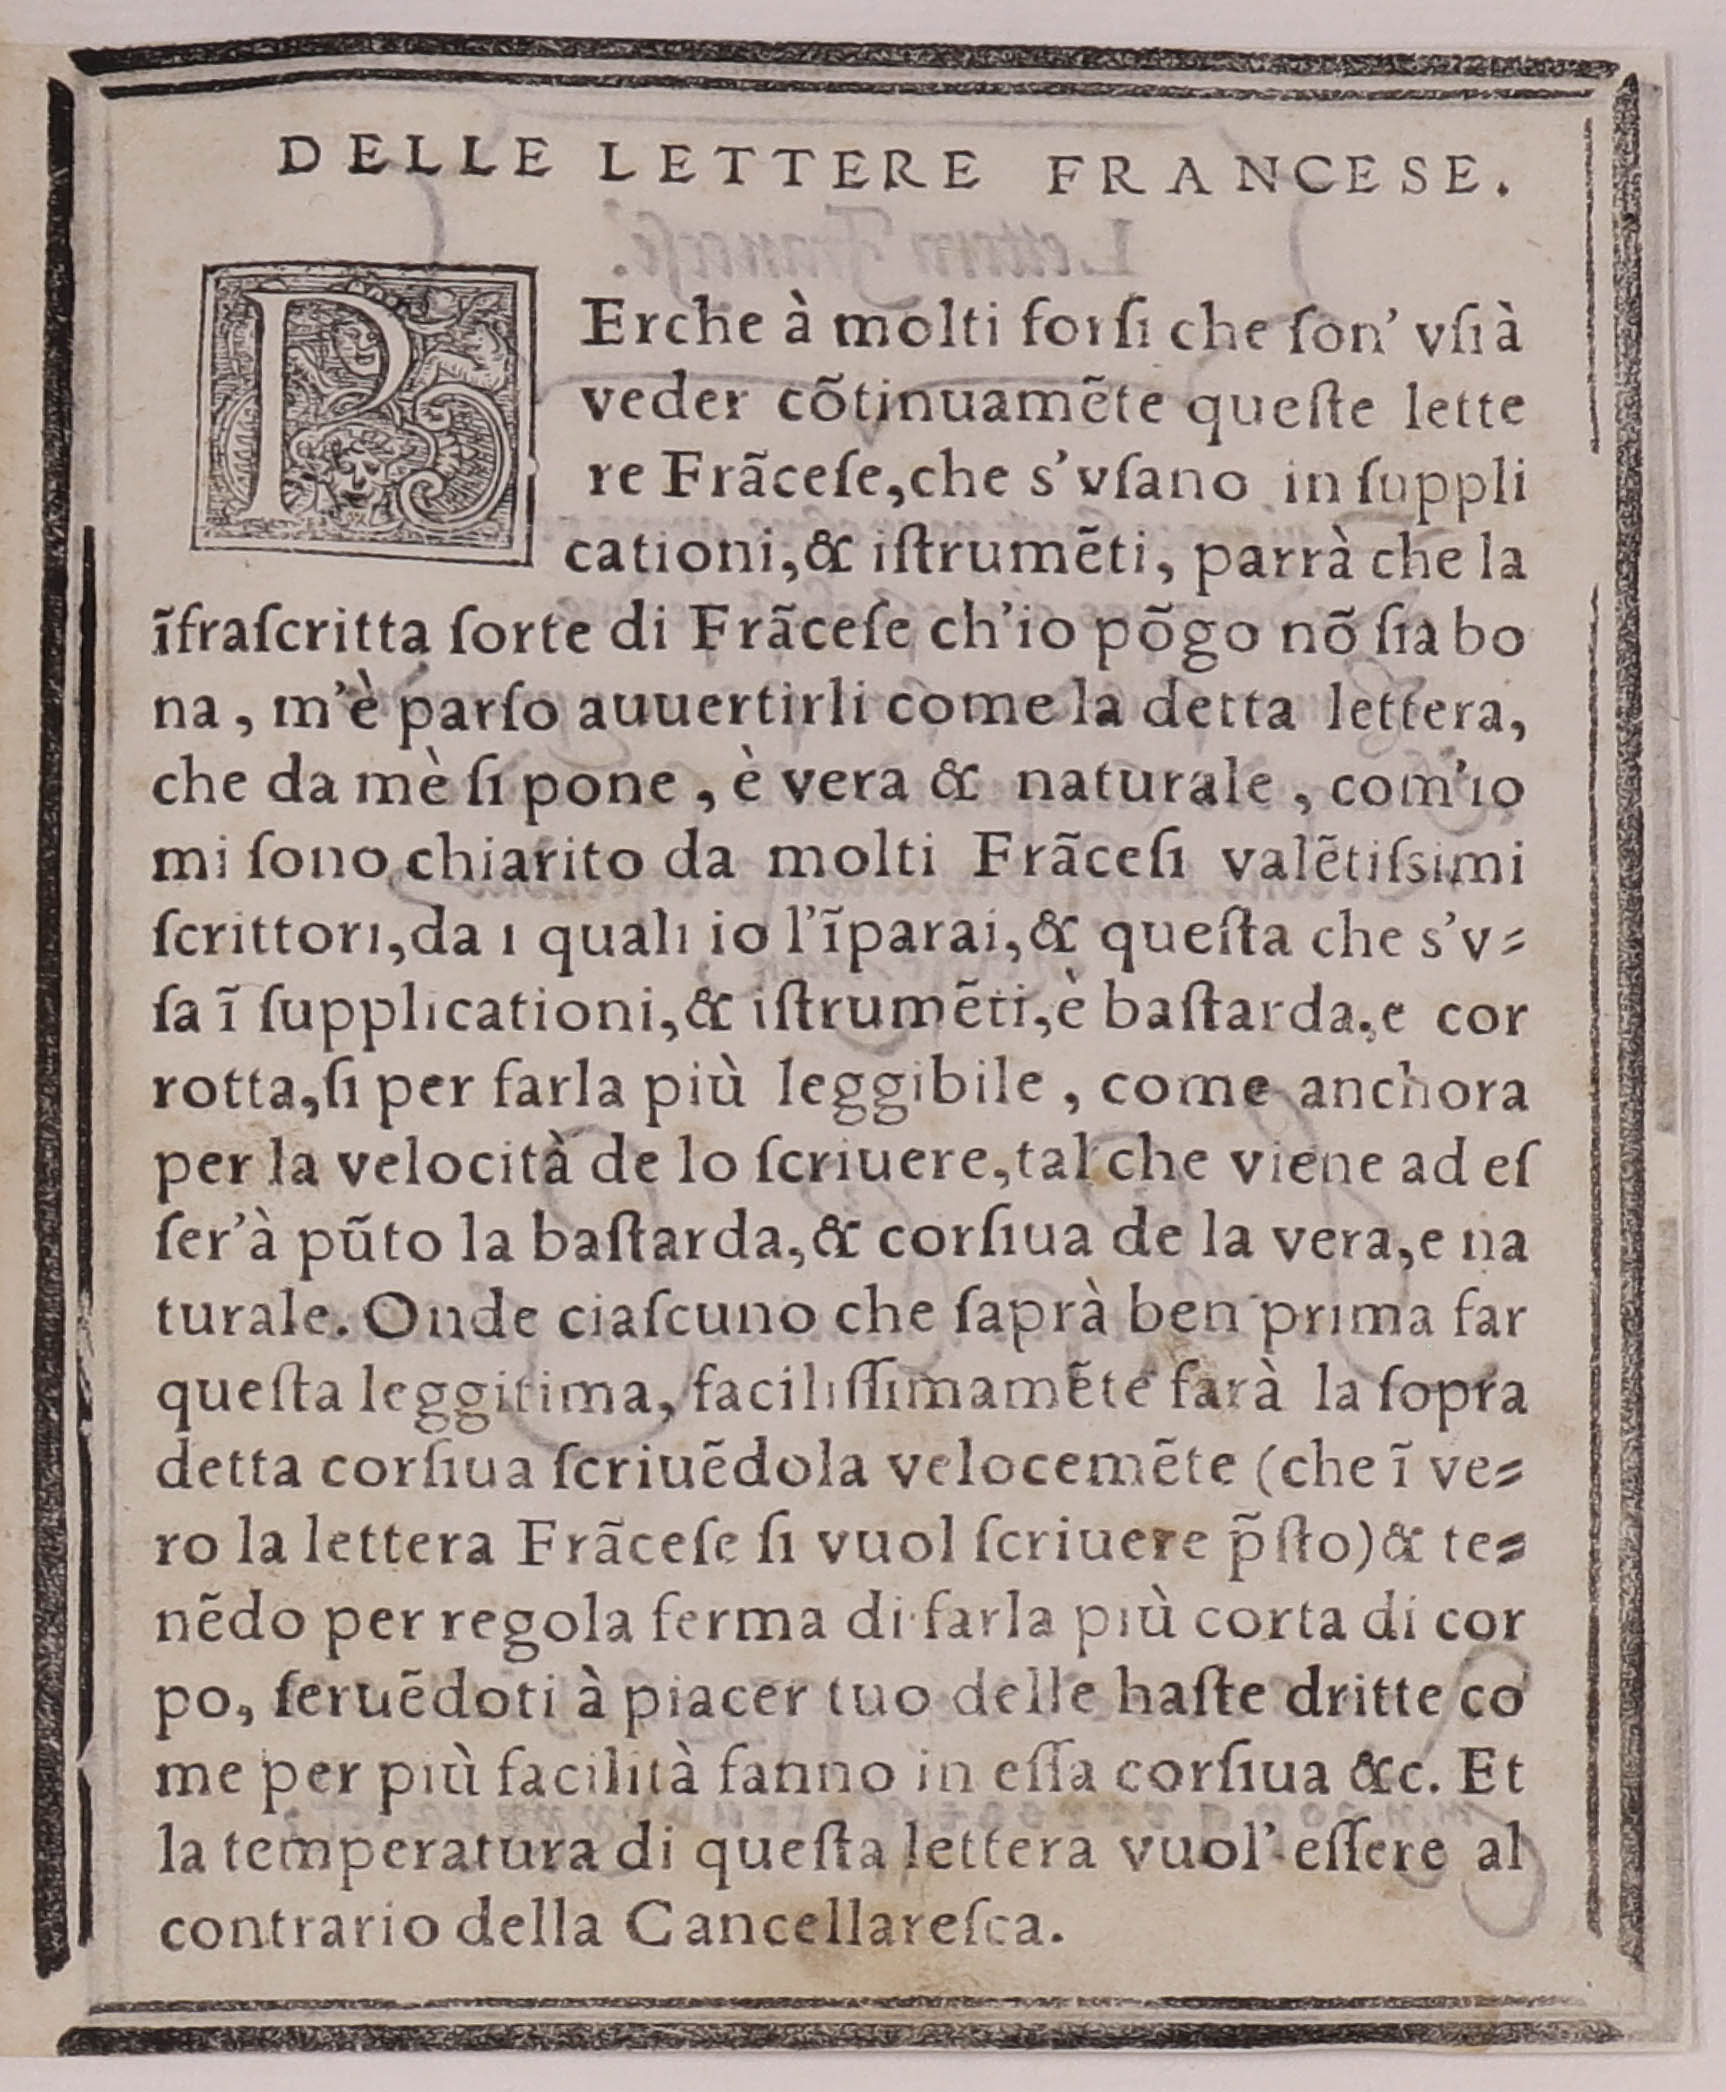 DELLE LETTERE FRANCESE.
PErche à molti forſi che ſon' vſi à
veder cõtinuamẽte queſte lette
re Frãceſe, che s'vſano in ſuppli
cationi, & iſtrumẽti, parrà che la
ĩfraſcritta ſorte di Frãceſe ch'io põgo nõ ſia bo
na, m'è parſo auuertirli come la detta lettera,
che da mè ſi pone, è vera & naturale, com'io
mi ſono chiarito da molti Frãceſi valẽtiſsimi
ſcrittori, da i quali io l'ĩparai, & queſta che s'v⸗
ſa ĩ ſupplicationi, & iſtrumẽti, è baſtarda, e cor
rotta, ſi per farla più leggibile, come anchora
per la velocità de lo ſcriuere, tal che viene ad eſ
ſer'à pũto la baſtarda, & corſiua de la vera, e na
turale. Onde ciaſcuno che ſaprà ben prima far
queſta leggitima, faciliſſimamẽte farà la ſopra
detta corſiua ſcriuẽdola velocemẽte (che ĩ ve⸗
ro la lettera Frãceſe ſi vuol ſcriuere p̃ſto) & te⸗
nẽdo per regola ferma di farla più corta di cor
po, ſeruẽdoti à piacer tuo delle haſte dritte co
me per più facilità fanno in eſſa corſiua &c. Et
la temperatura di queſta lettera vuol' eſſere al
contrario della Cancellareſca.